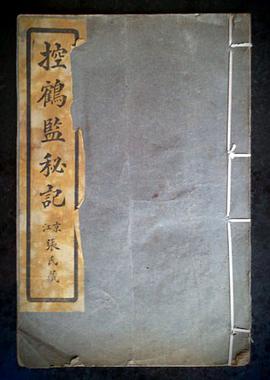 控鶴監秘記
京江張氏藏